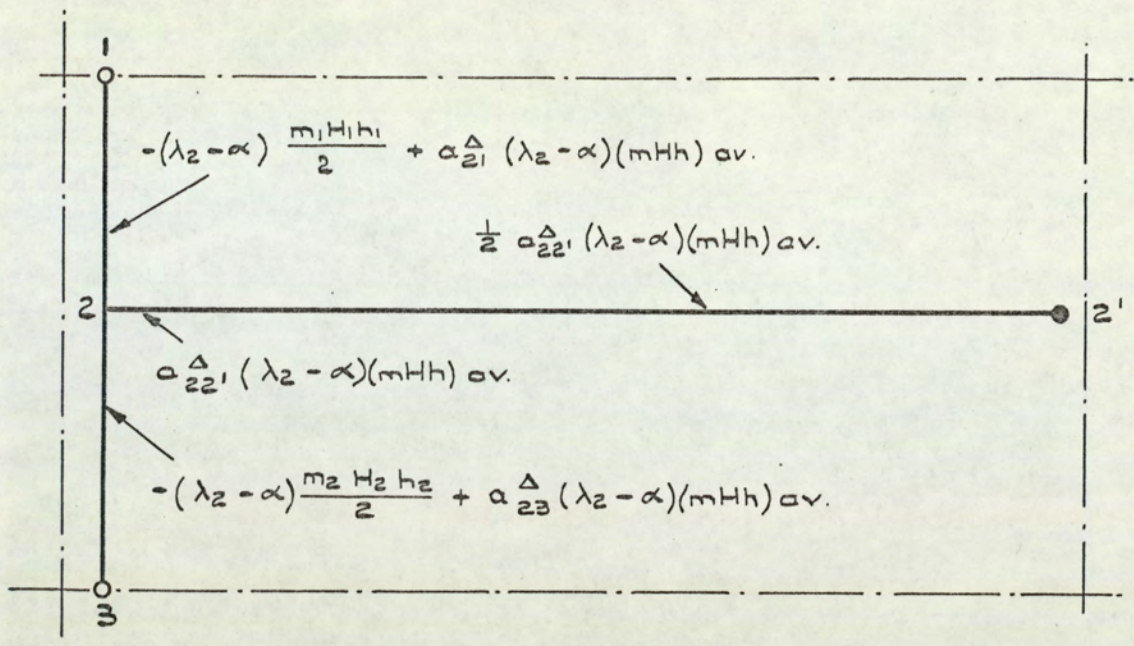 1
-(λ₂-α) m₁H₁h₁/2 + a₂₁^Δ (λ₂-α)(mHh) av.
½ a₂₂'^Δ (λ₂-α)(mHh) av.
2
2'
a₂₂'^Δ (λ₂-α)(mHh) av.
-(λ₂-α) m₂ H₂ h₂/2 + a₂₃^Δ (λ₂-α)(mHh) av.
3